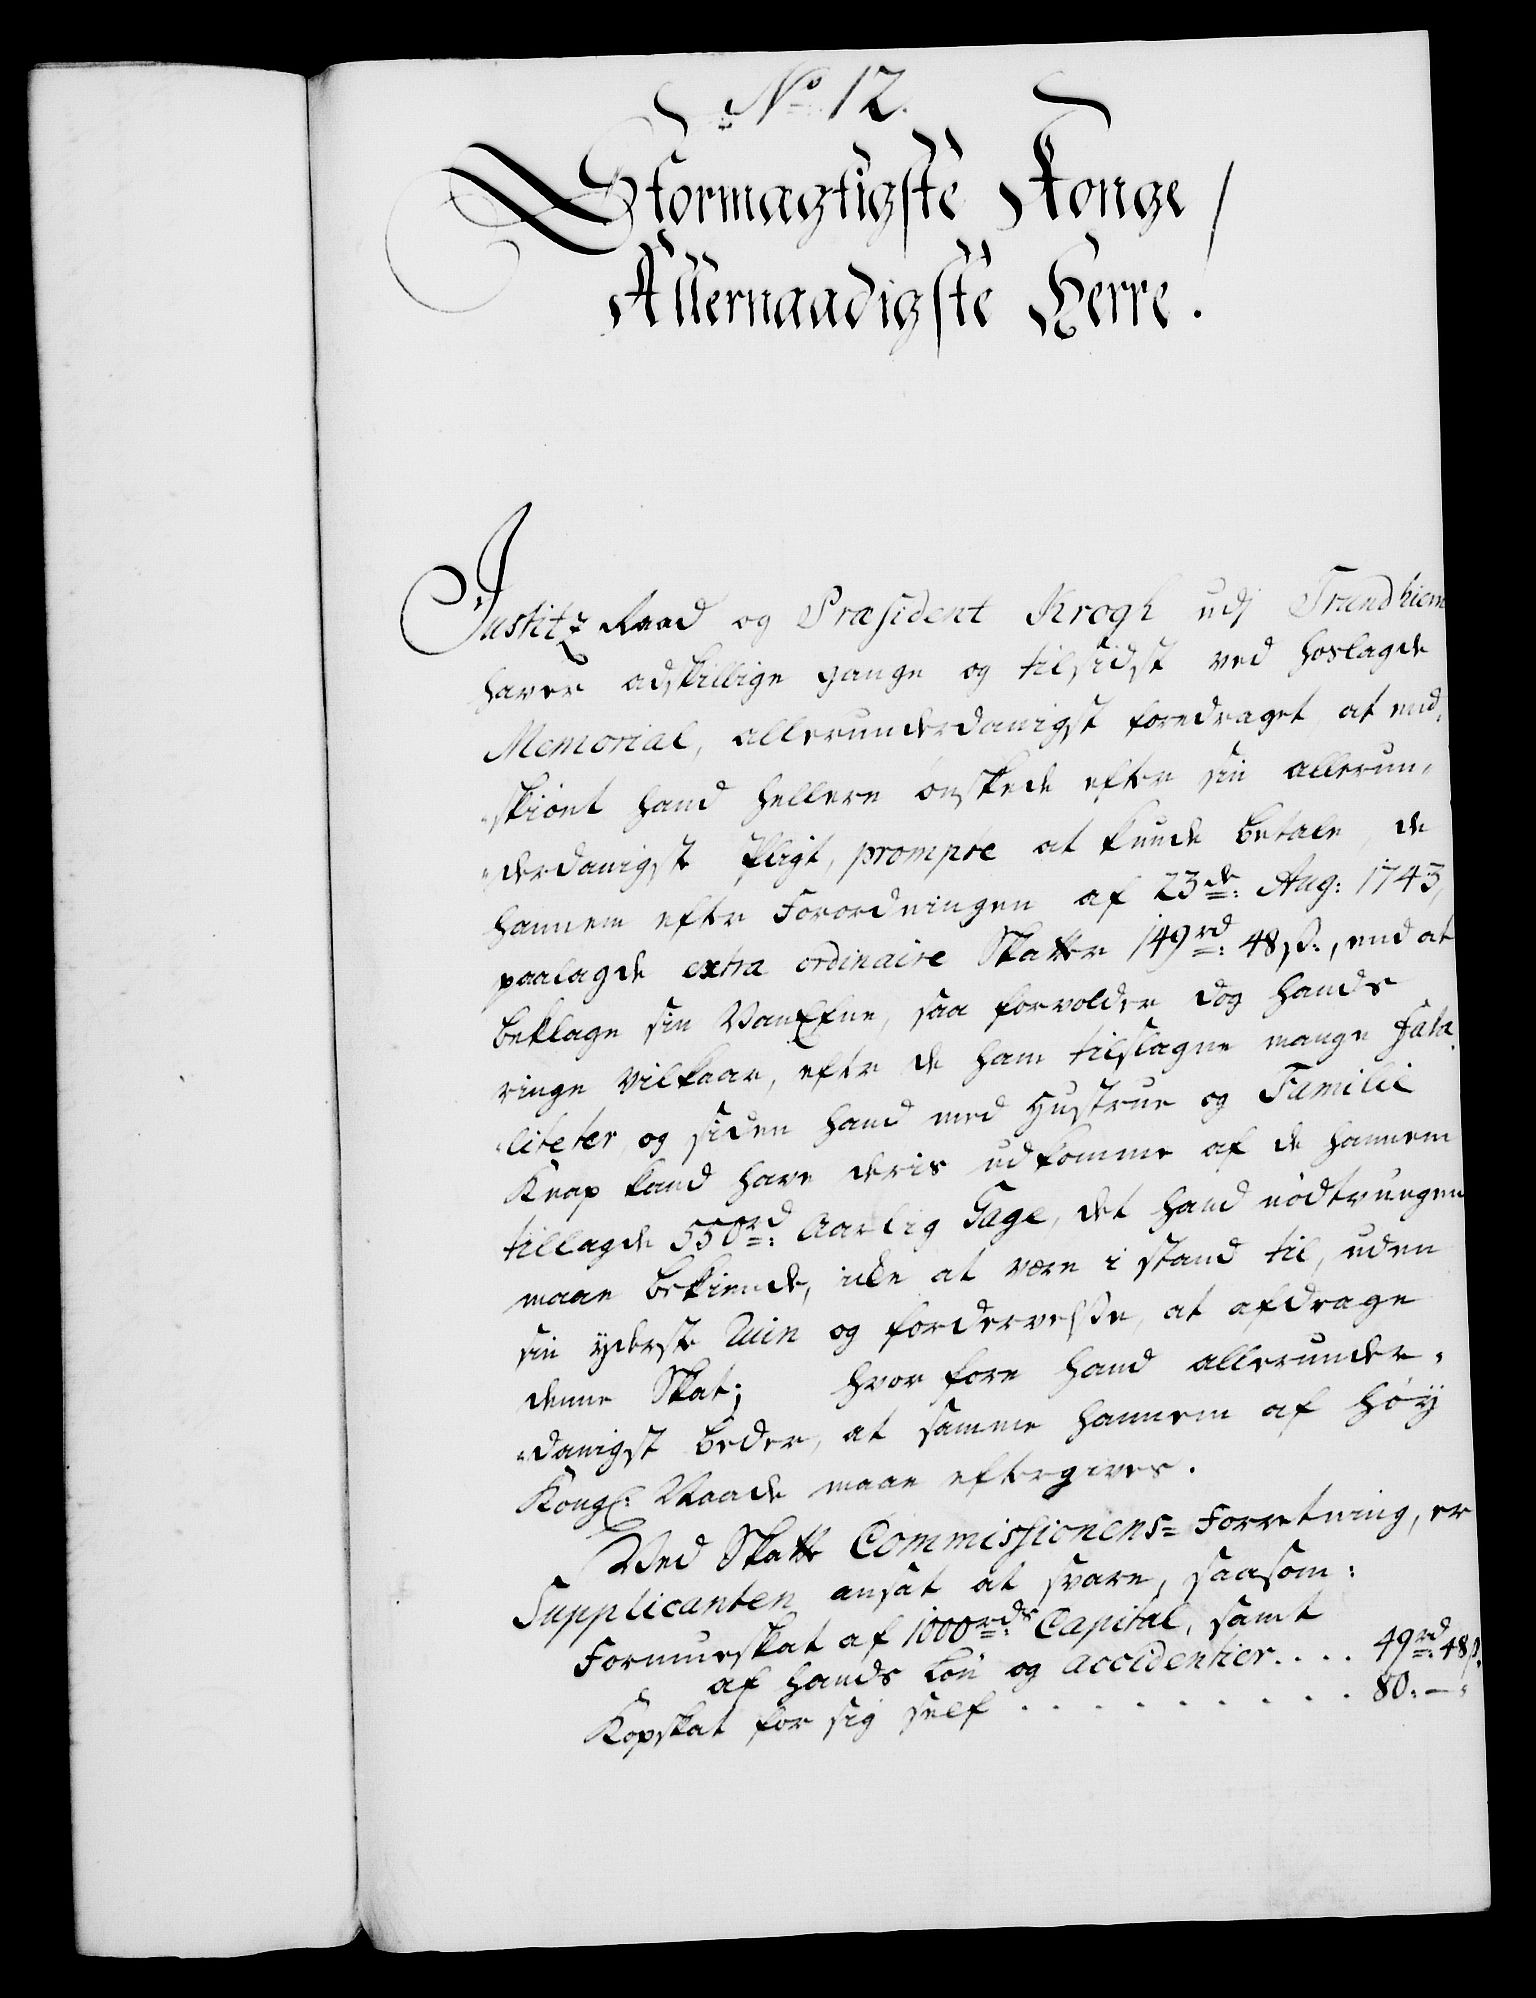 No. 12.
Stormagtigste Konge /
Allernaadigste Herre.
Justitz Raad og Præsident Krogh udj Trundhiem
haver adskillige gange og tilsidst ved hoslagde
Memorial, allerunderdanigst foredraget, at end-
-skiönt hand hellere önskede efter sin allerun-
-derdanigst Pligt, prompte at kunde betale, de
hannem efter Forordningen af 23de: Aug: 1743,
paalagde extra ordinaire Skatter 149rd: 48ß:, end at
beklage sin VanEfne, saa forvolder dog hands
ringe Vilkaar, efter de ham tilslagne mange Fata-
-liteter, og siden hand med Hustrue og Familie
Knap kand have deris udkomme af de hannem
tillagde 550rd: Aarlig Gage, det hand nödtvungen
maae bekiende, icke at være i stand til, uden
sin yderste Ruin og fordervelße, at afdrage
denne Skat; hvor fore hand allerunder-
-danigst beder, at samme hannem af Höy
Kongl: Naade maae eftergives.
Ved Skatte Commissionens= Forretning, er
Supplicanten ansat at svare, saasom:
Formueskat af 1000rds: Capital, samt
af hands Lön og accidentier.... 49rd: 48ß.
Kopskat for sig self . . . . . . . . . . 80: —: